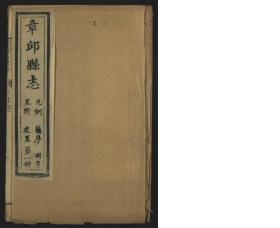 章邱縣志
凡例 續序 圖考
星野 建置 第一冊